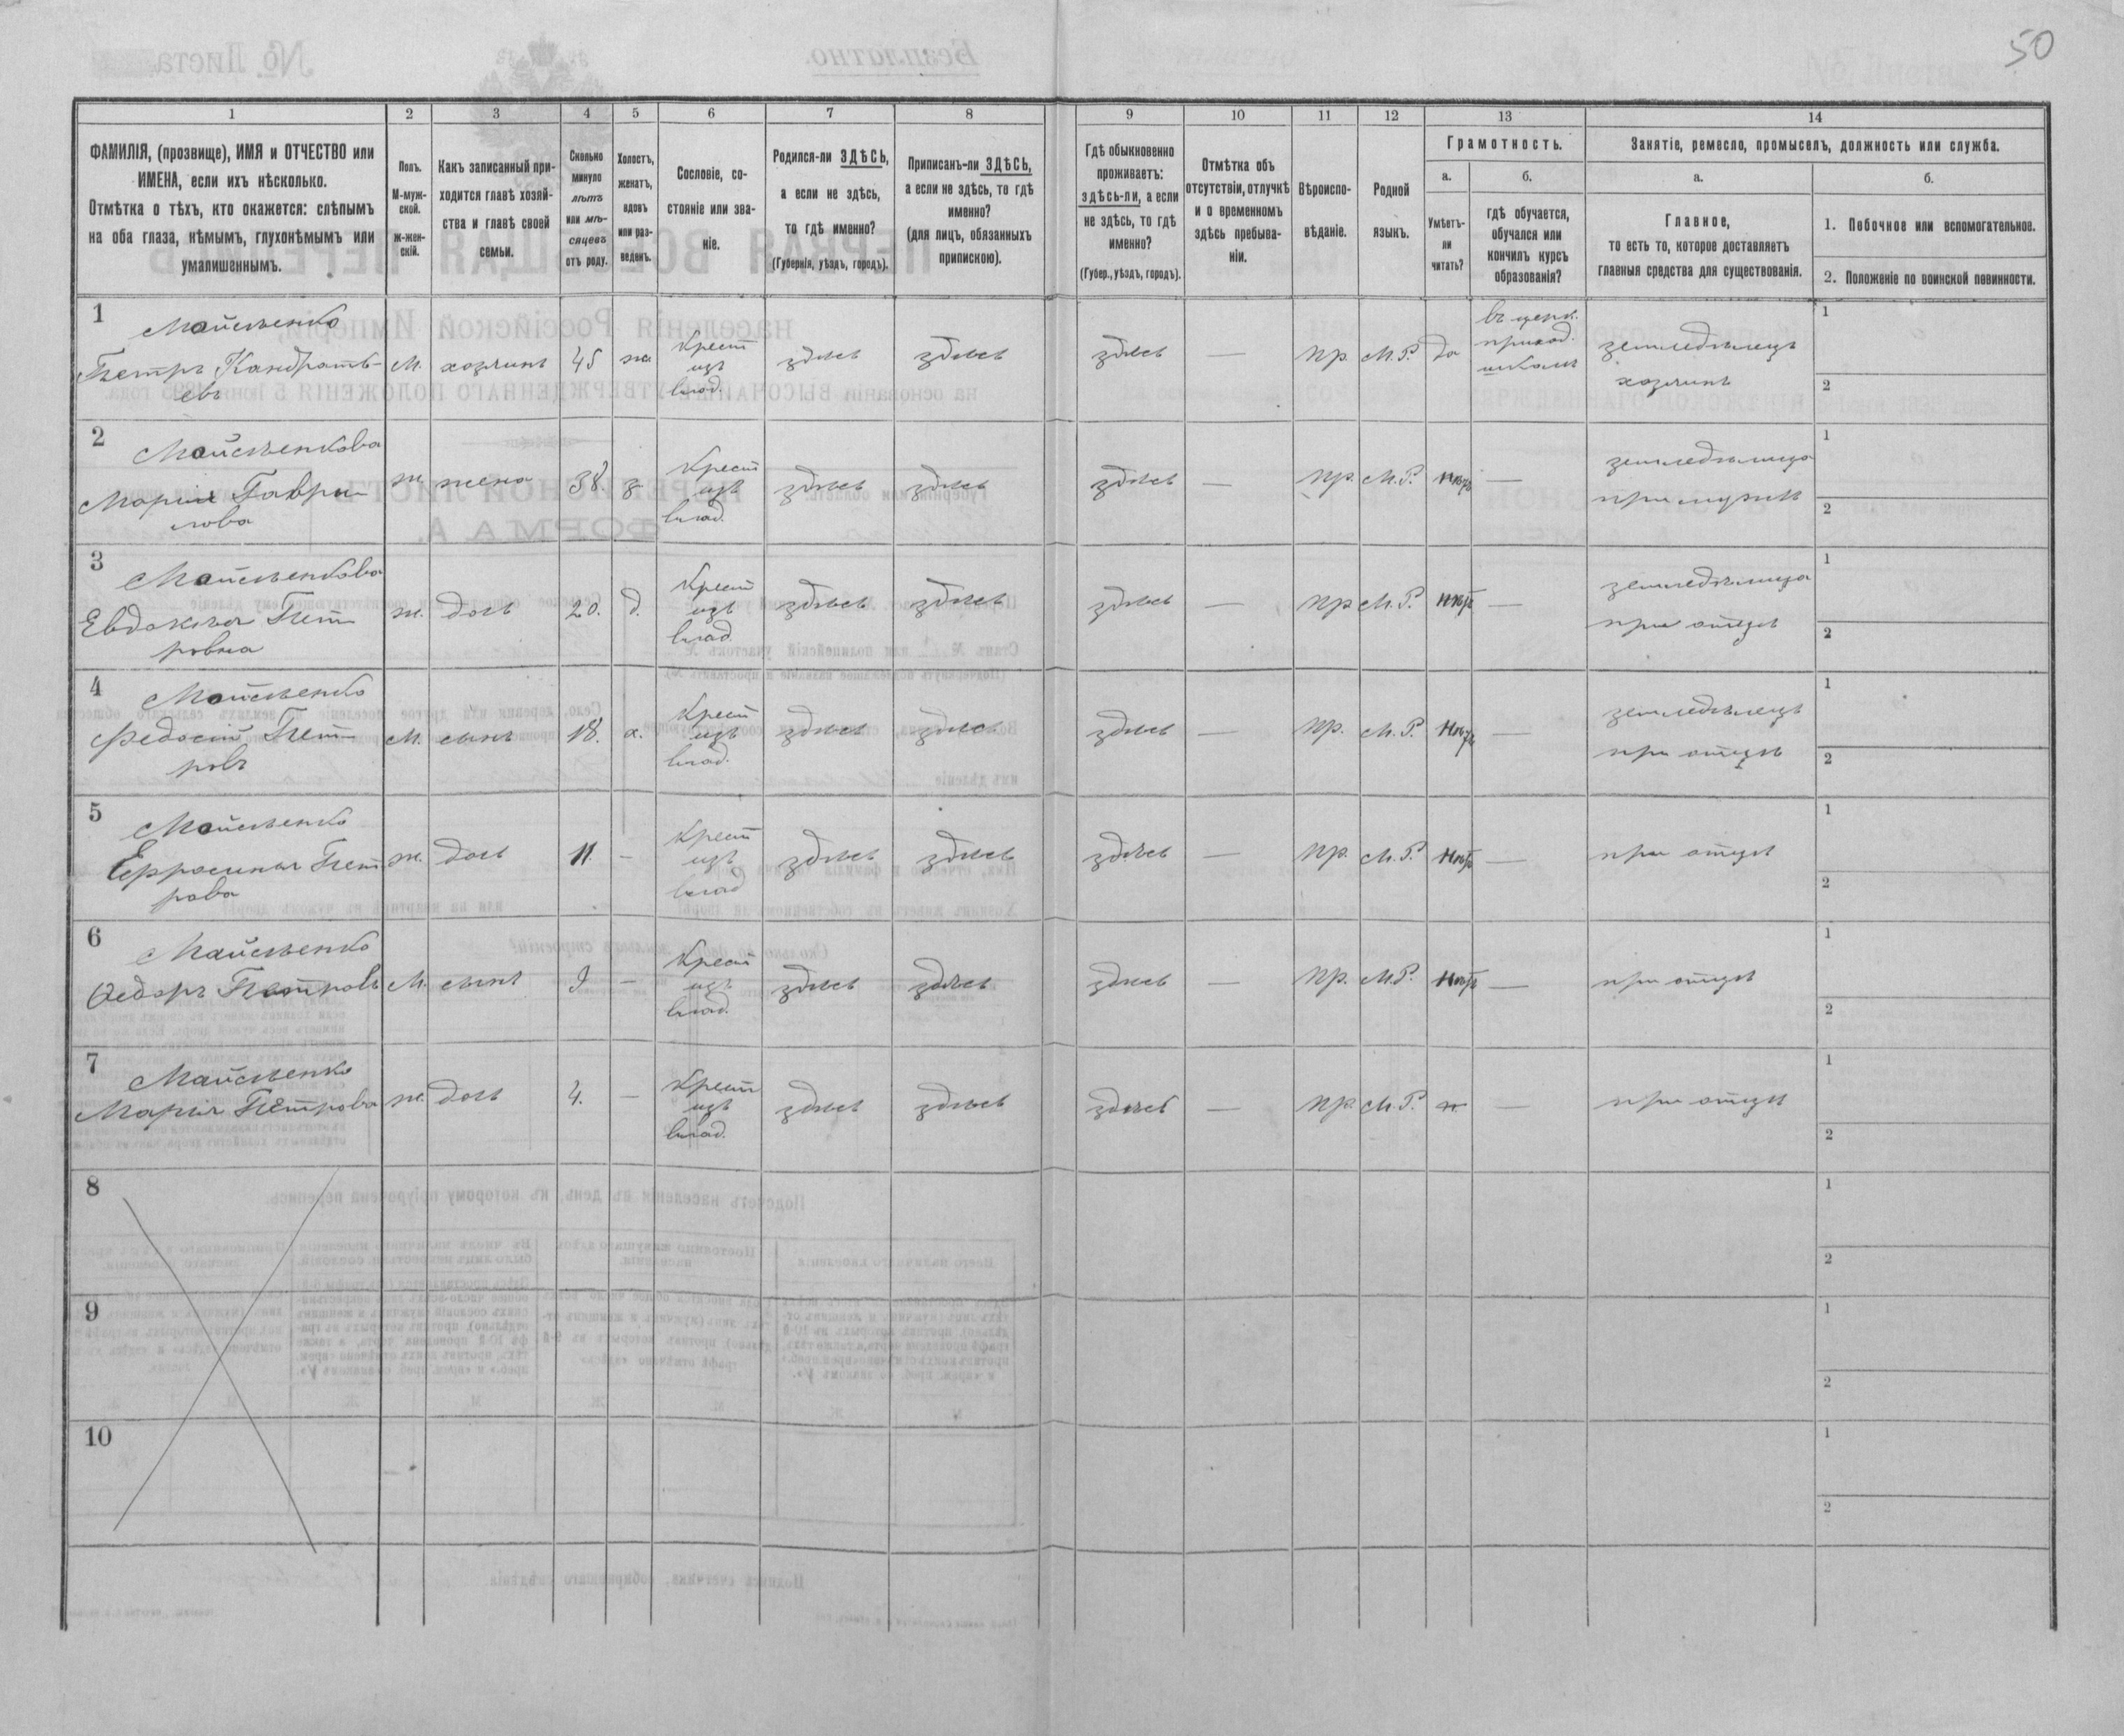 50
1
2
3
4
5
6
7
8
9
10
11
12
13
14
ФАМИЛІЯ, (прозвище), ИМЯ и ОТЧЕСТВО или
ИМЕНА, если ихъ нѣсколько.
Отмѣтка о тѣхъ, кто окажется: слѣпымъ
на оба глаза, нѣмымъ, глухонѣмымъ или
умалишеннымъ.
Полъ.
М-муж-
ской.
ж-жен-
скій.
Какъ записанный при-
ходится главѣ хозяй-
ства и главѣ своей
семьи.
Сколько
минуло
лѣтъ
или мѣ-
сяцевъ
отъ роду.
Холостъ,
женатъ,
вдовъ
или раз-
веденъ.
Сословіе, со-
стояніе или зва-
ніе.
Родился-ли ЗДѢСЬ,
а если не здѣсь,
то гдѣ именно?
(Губернія, уѣздъ, городъ).
Приписанъ-ли ЗДѢСЬ,
а если не здѣсь, то гдѣ
именно?
(для лицъ, обязанныхъ
припискою).
Гдѣ обыкновенно
проживаетъ:
здѣсь-ли, а если
не здѣсь, то гдѣ
именно?
(Губер., уѣздъ, городъ).
Отмѣтка объ
отсутствіи, отлучкѣ
и о временномъ
здѣсь пребыва-
ніи.
Вѣроиспо-
вѣданіе.
Родной
языкъ.
Грамотность.
а.
Умѣетъ-
ли
читать?
б.
гдѣ обучается,
обучался или
кончилъ курсъ
образованія?
Занятіе, ремесло, промыселъ, должность или служба.
а.
Главное,
то есть то, которое доставляетъ
главныя средства для существованія.
б.
1. Побочное или вспомогательное.
2. Положеніе по воинской повинности.
1
Мойсѣенко
Петръ Кандратъ-
евъ
М.
хозяинъ
45
ж.
Крест
изъ
влад.
здѣсь
здѣсь
здѣсь
—
пр.
М.Р.
да
въ церк.
приход.
школѣ
земледѣлецъ
хозяинъ
1
2
2
Мойсѣенкова
Марія Гаври-
лова
ж
жена
38.
з
Крест
изъ
влад.
здѣсь
здѣсь
здѣсь
—
пр.
М.Р.
—
земледѣлица
при мужѣ
1
2
3
Мойсѣенкова
Евдокія Пет
ровна
ж.
дочь
20.
д.
Крест
изъ
влад.
здѣсь
здѣсь
здѣсь
—
пр
М.Р.
—
земледѣлица
при отцѣ
1
2
4
Мойсѣенко
Федосій Пет
ровъ
М.
сынъ
18.
х.
Крест
изъ
влад.
здѣсь
здѣсь
здѣсь
—
пр.
М.Р.
—
земледѣлецъ
при отцѣ
1
2
5
Мойсѣенко
Ефросинія Пет
рова
ж.
дочь
11.
—
Крест
изъ
влад
здѣсь
здѣсь
здѣсь
—
пр.
М.Р.
—
при отцѣ
1
2
6
Майсѣенко
Ѳедоръ Петровъ
М.
сынъ
9
—
Крест
изъ
влад.
здѣсь
здѣсь
здѣсь
—
пр.
М.Р.
—
при отцѣ
1
2
7
Майсѣенко
Марія Петрова
ж.
дочь
4.
—
Крест
изъ
влад.
здѣсь
здѣсь
здѣсь
—
пр.
М.Р.
—
при отцѣ
1
2
8
1
2
9
1
2
10
1
2